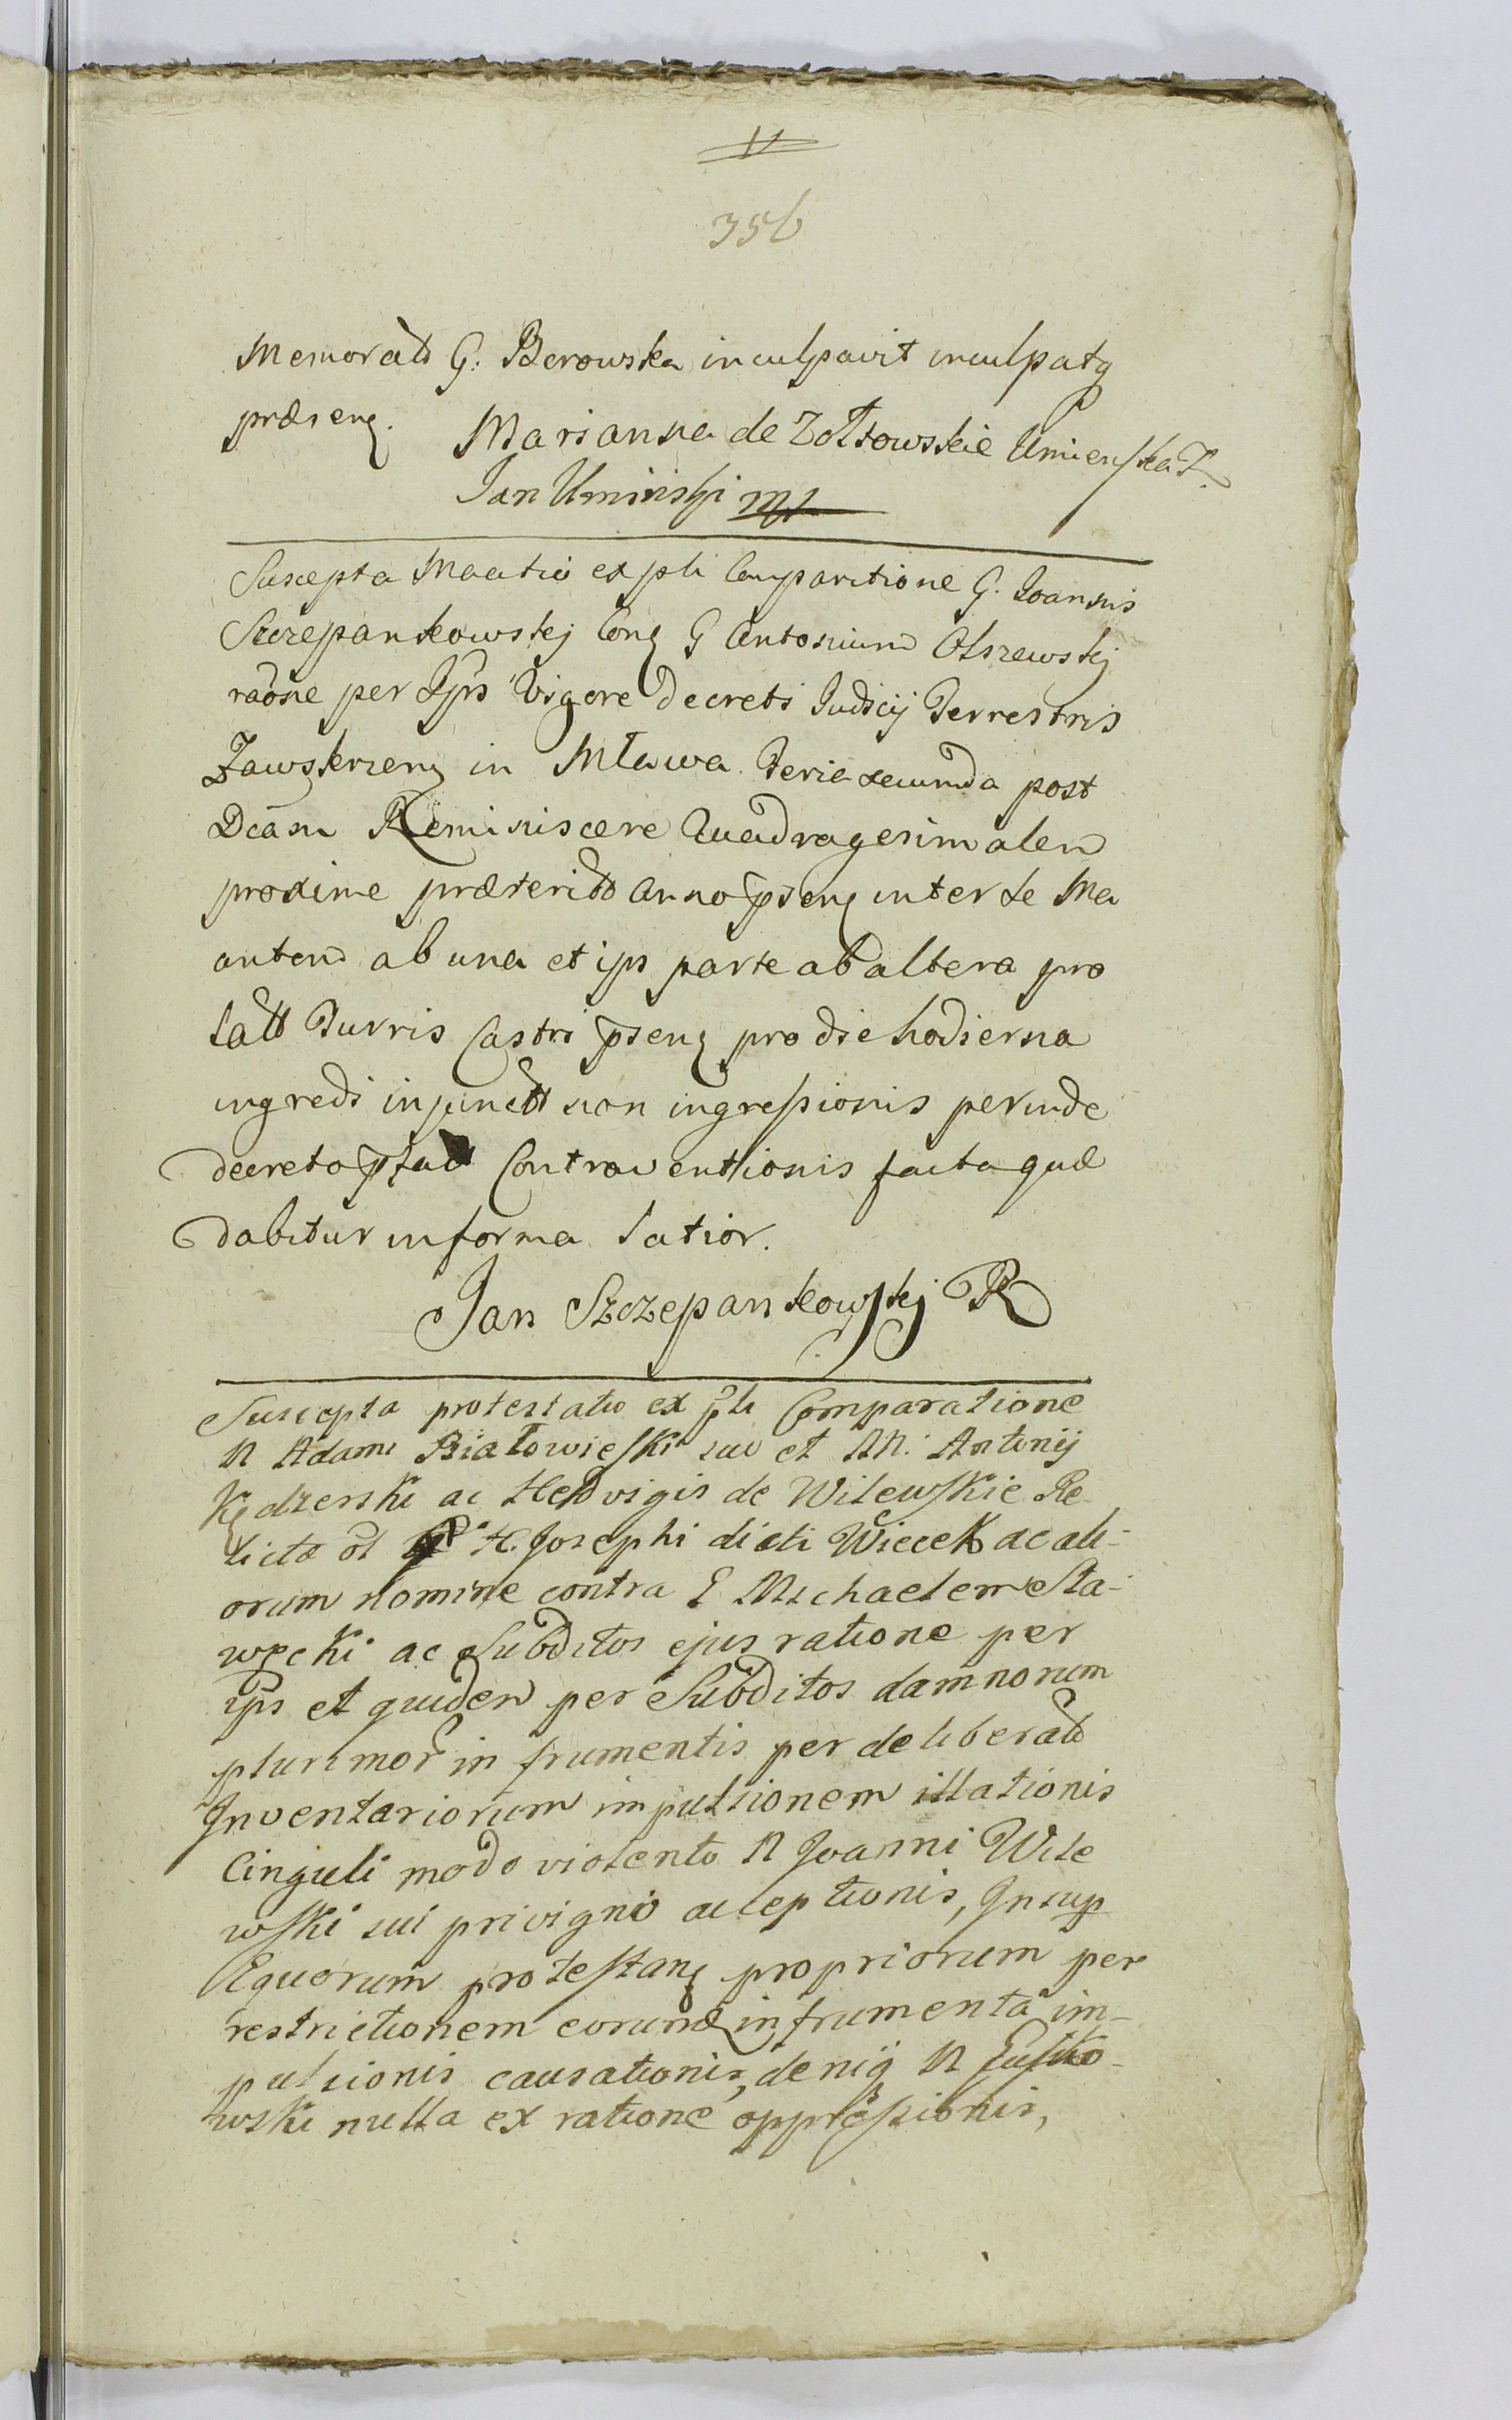 356
Memorato G. Berowska inculpavit inculpatq
præsenq.
Marianna de Zołtowskie Uminska
Jan Uminski mp
Suscepta Maãtio ex pli Comparitione G. Joannis
Szczepankowskj Conq G Antonium Olszewskj
raõne per Jps Vigore Decreti Judicij Terrestris
Zawskrzenq in Mława Feria secunda post
Dcãm Reminiscere Quadragesimalem
proxime præterito Anno psenq inter se Ma
antem ab una et ips parte ab altera pro
latt Turris Castri psenq pro die hodierna
ingredi injunctt non ingressionis perinde
decreto Contraventionis facta quæ
dabitur in forma latior.
Jan Szczepankowskj R
Suscepta protestatio ex pli Comparatione
N Adami Białowieski suo et NN. Antonij
Kędzerski ac Hedvigis de Wilewskie Re-
lictæ ol H. Josephi dicti Wiecek ac ali-
orum nomine contra G Michaelem Sta-
węcki ac Subditos ejus ratione per
ips et quidem per Subditos damnorum
plurimor in frumentis per deliberatã
Inventariorum impulsionem illationis
Cinguli modo violento N Joanni Wile
wski sui privigno acceptionis, Insup
Equorum protestanq propriorum per
restrictionem eorund in frumenta im-
pulsionis causationis, deniq N
wski nulla ex ratione oppressionis,